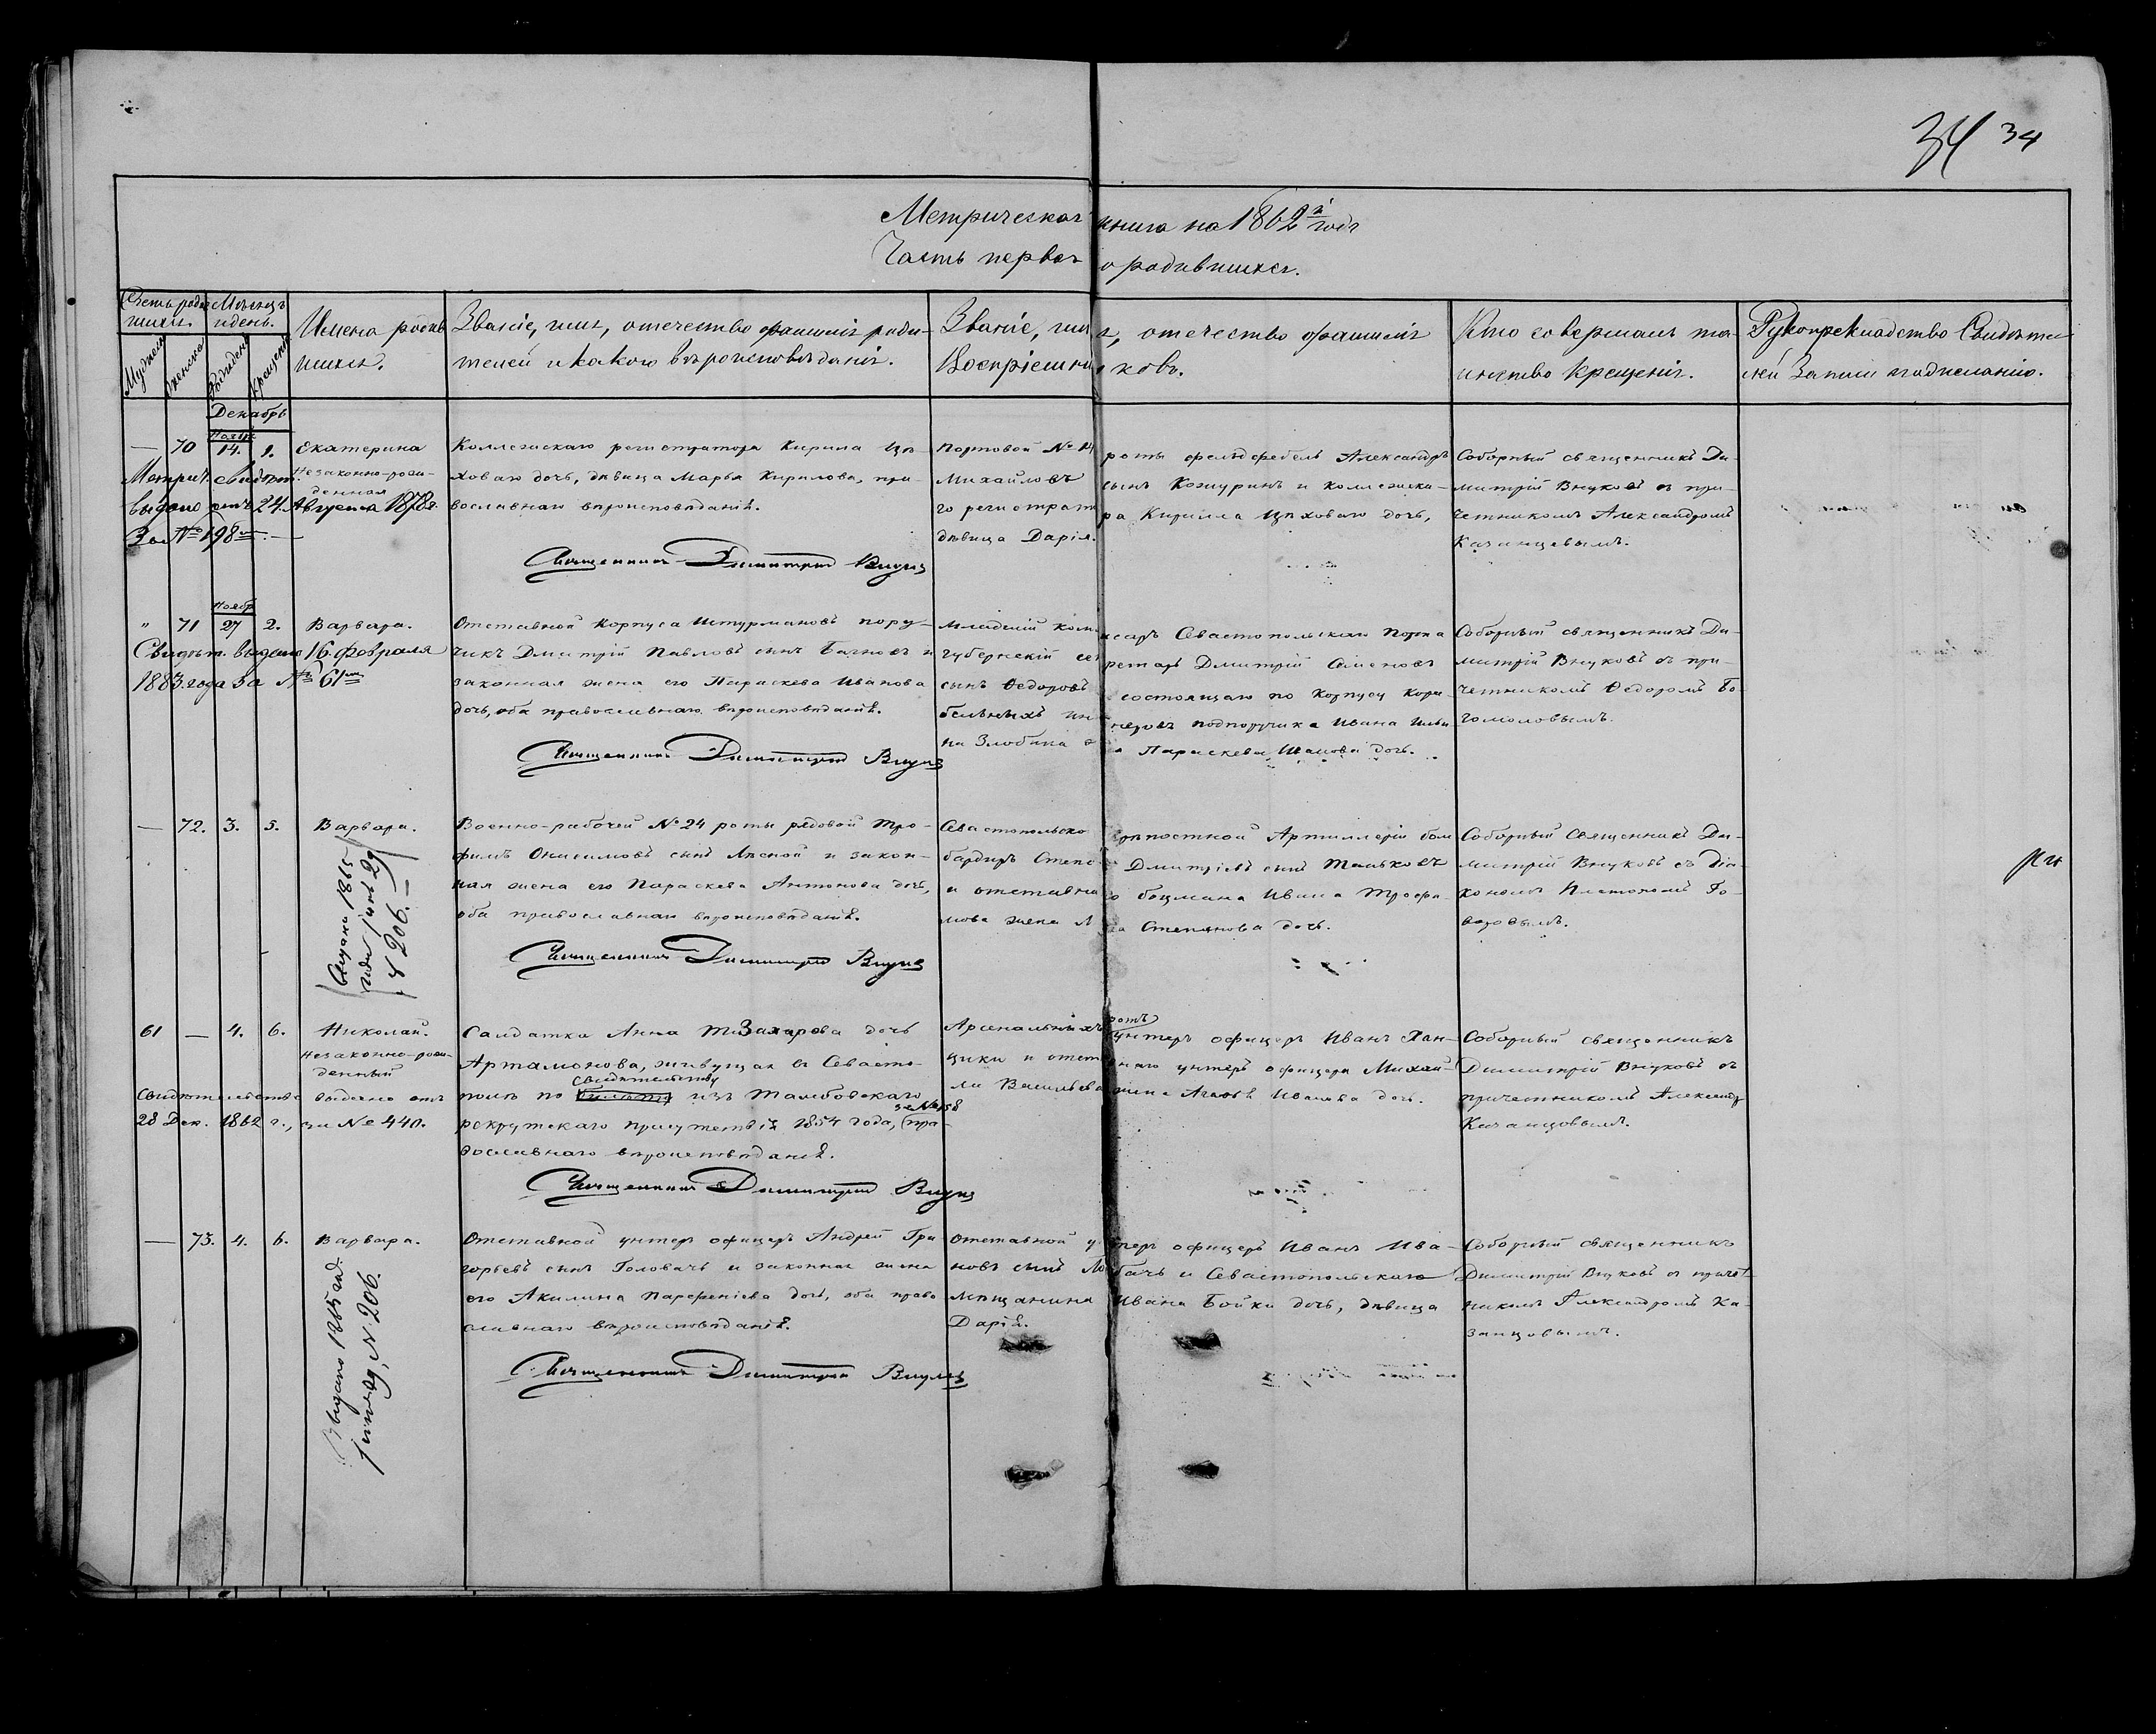 34 34
Метрическая книга на 1862й годъ
Часть первая о родившихся.
Счетъ родив-
шихся.
Мѣсяцъ
и день.
Мужеска
Женска
Рожденія
Крещенія
Имена родив
шихся.
Званіе, имя, отечество и фамилія роди-
телей и какого вѣроисповѣданія.
Званіе, имя, отечество и фамилія
Воспріемниковъ.
Кто совершалъ та-
инство Крещенія.
Рукоприкладство Свидѣте-
лей Записи по желанію.
Декабрь
— 70 Ноябр. 14. 1. Екатерина
Незаконно-рож-
денная
Метрич. свидѣт.
выдано отъ 24. Августа 1878г.
За № 198м
Коллежскаго регистратора Кирила
ховаго дочь, дѣвица Марья Кирилова, пра-
вославнаго вѣроисповѣданія.
Священникъ Димитрій Внуковъ
Портовой № 14 роты фельдфебель Александръ
Михайловъ сынъ Кожуринъ и коллежска-
го регистратора Кирилла дочь,
дѣвица Дарія.
Соборный священникъ Ди-
митрій Внуковъ съ при-
четникомъ Александромъ
Казанцевымъ.
" 71 Ноябр 27 2. Варвара.
Свидѣт. выдано 16. Февраля
1883. года за № 61м
Отставной Корпуса Штурмановъ пору-
чикъ Дмитрій Павловъ сынъ и
законная жена его Параскева Иванова
дочь, оба православнаго вѣроисповѣданія.
Священникъ Димитрій Внуковъ
Младшій комисаръ Севастопольскаго Порта
губернскій секретарь Дмитрій Семеновъ
сынъ Федоровъ состоящаго по Корпусу Кора-
бельныхъ инженеровъ подпоручика Ивана Ильи
на Злобина Параскева Иванова дочь.
Соборный священникъ Ди-
митрій Внуковъ съ при-
четникомъ Федоромъ Бо-
гомоловымъ.
— 72. 3. 5. Варвара.
Выдано 1885
года іюнь 29
№ 206.
Военно-рабочей № 24 роты рядовой Тро-
фимъ Онисимовъ сынъ Лясной и закон-
ная жена его Параскева Антонова дочь,
оба православнаго вѣроисповѣданія.
Священникъ Димитрій Внуковъ
Севастопольской крѣпостной Артиллеріи бом
бардиръ Степанъ Дмитріевъ сынъ Таньковъ
и отставнаго боцмана Ивана Трофи-
мова жена Степанова дочь.
Соборный священникъ Ди-
митрій Внуковъ съ Діа-
кономъ Платономъ Го-
воровымъ.
61 — 4. 6. Николай.
Незаконно-рож-
денный
Свидѣтельство выдано отъ
28 Дек. 1862 г., за № 440.
Салдатка Анна Захарова дочь
Артамонова, живущая въ Севасто-
полѣ по свидѣтельству изъ Тамбовскаго
рекрутскаго присутствія 1854 года, за № 158 пра-
вославнаго вѣроисповѣданія.
Священникъ Димитрій Внуковъ
Арсенальныхъ ротъ унтеръ офицеръ Иванъ
и отставнаго унтеръ офицера Михаи-
ла Васильева жена Агафія Иванова дочь.
Соборный священникъ
Димитрій Внуковъ съ
причетникомъ Александр
Казанцовымъ.
— 73. 4. 6. Варвара.
Выдано 1885 год.
іюня 29, № 206.
Отставной унтеръ офицеръ Андрей Гри
горьевъ сынъ Головачъ и законная жена
его Акилина Парфеніева дочь, оба право
славнаго вѣроисповѣданія.
Священникъ Димитрій Внуковъ
Отставной унтеръ офицеръ Иванъ Ива-
новъ сынъ и Севастопольскаго
мѣщанина Ивана Бойки дочь, дѣвица
Дарія.
Соборный священникъ
Димитрій Внуковъ съ причет
никомъ Александромъ Ка-
занцовымъ.